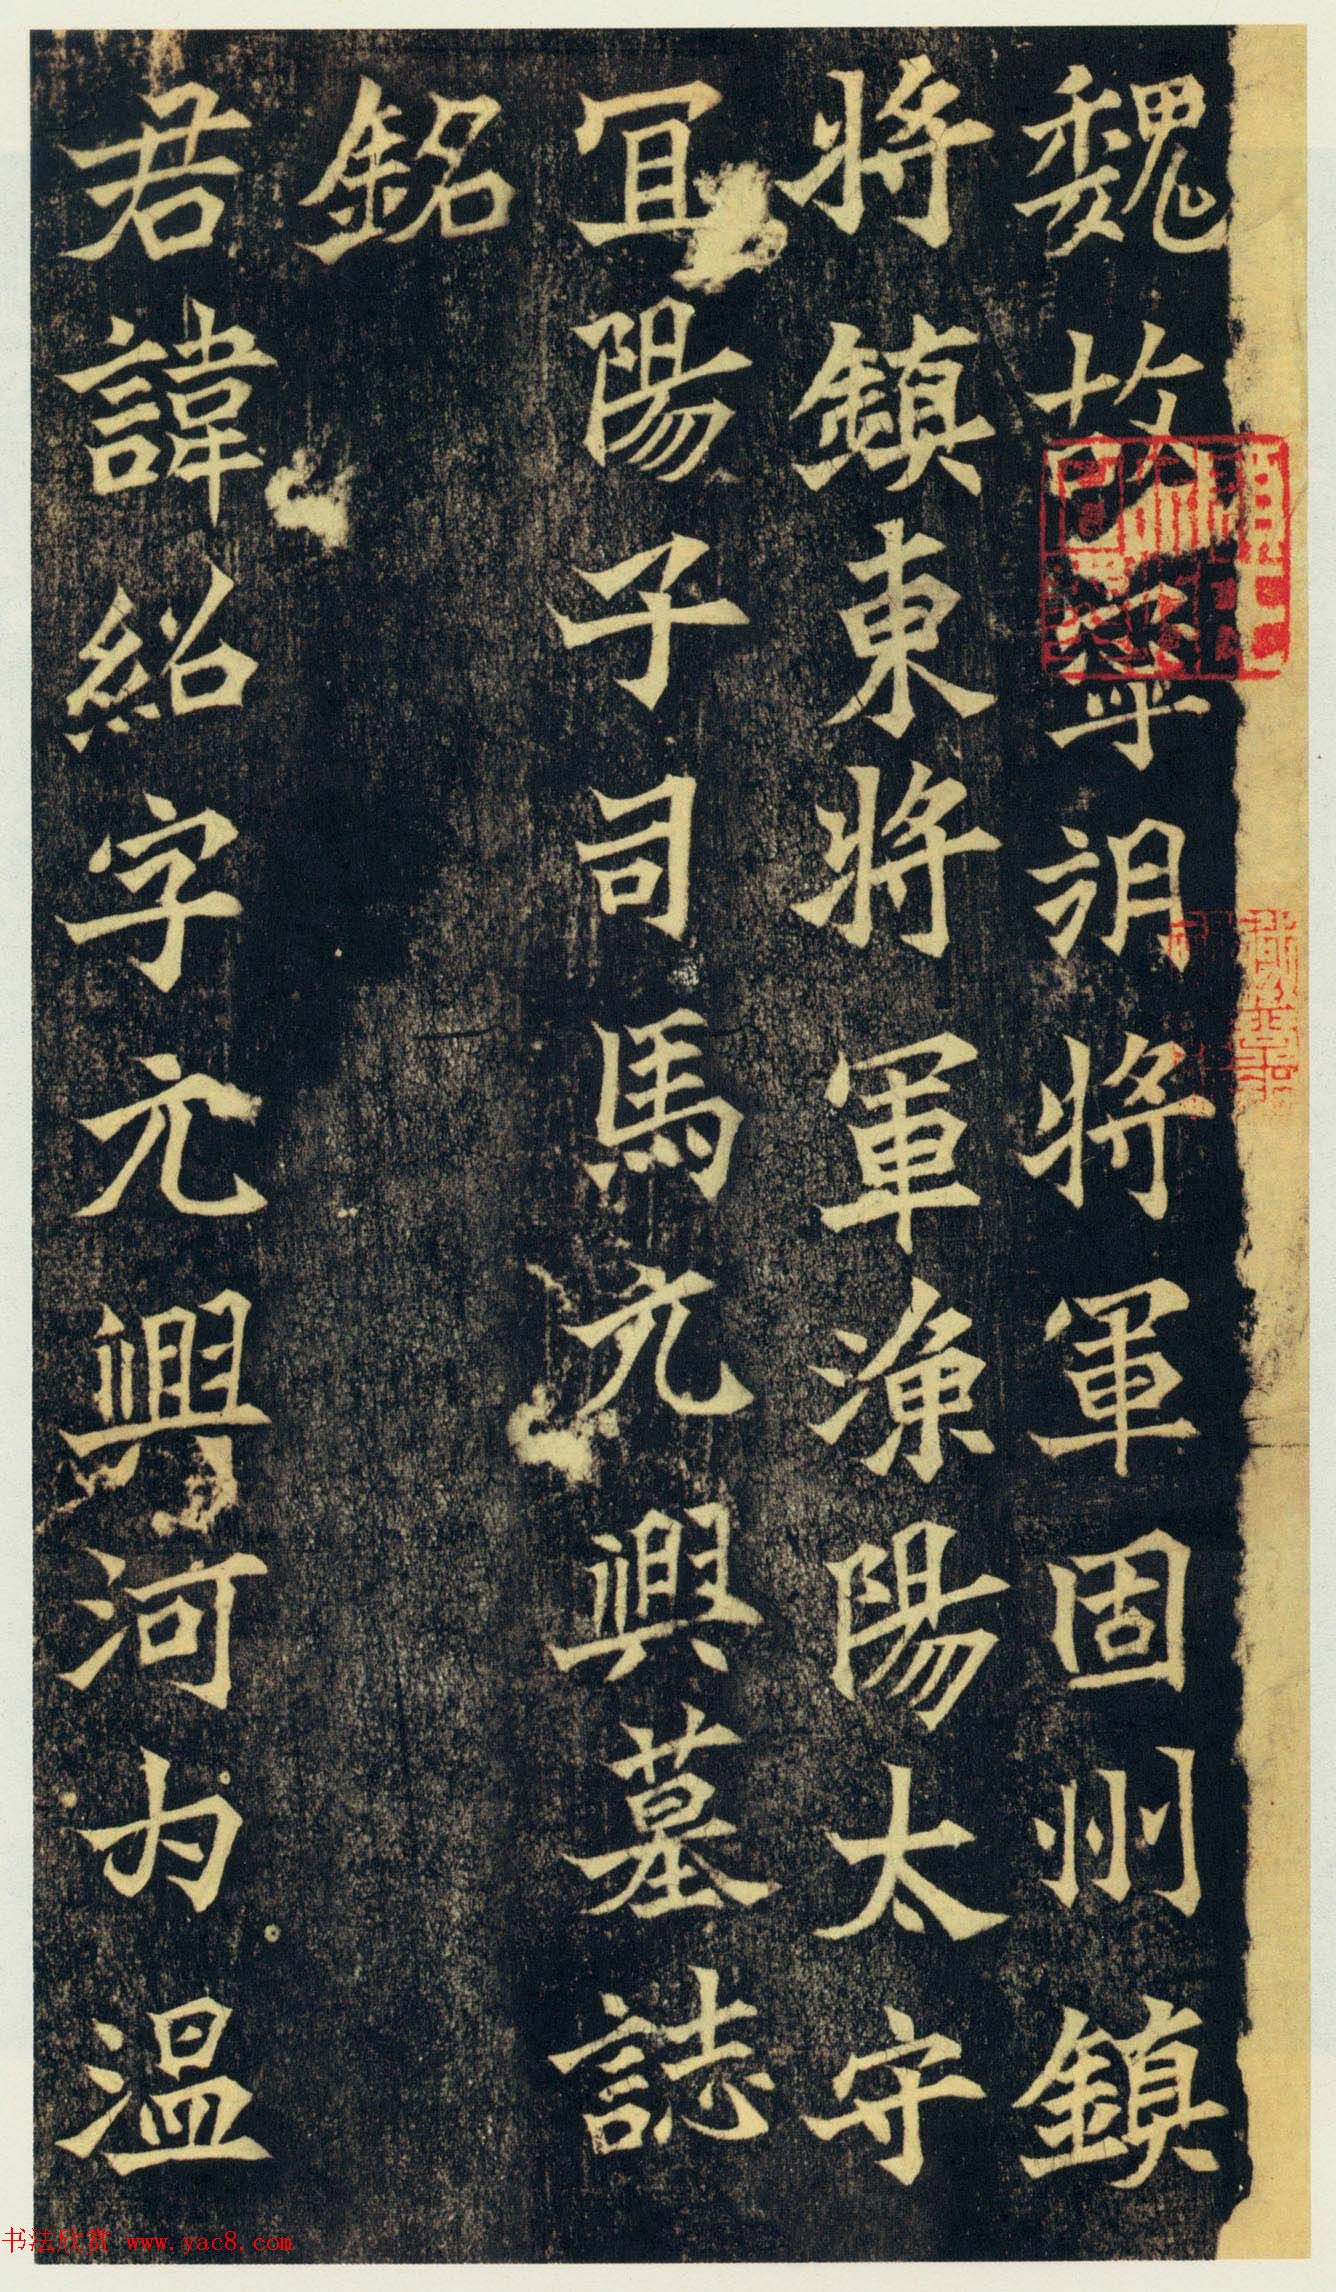 魏故寧朔將軍固州鎮
將鎮東將軍漁陽太守
冝陽子司馬元興墓誌
銘
君諱紹字元興河內溫
书法欣赏 www.yac8.com